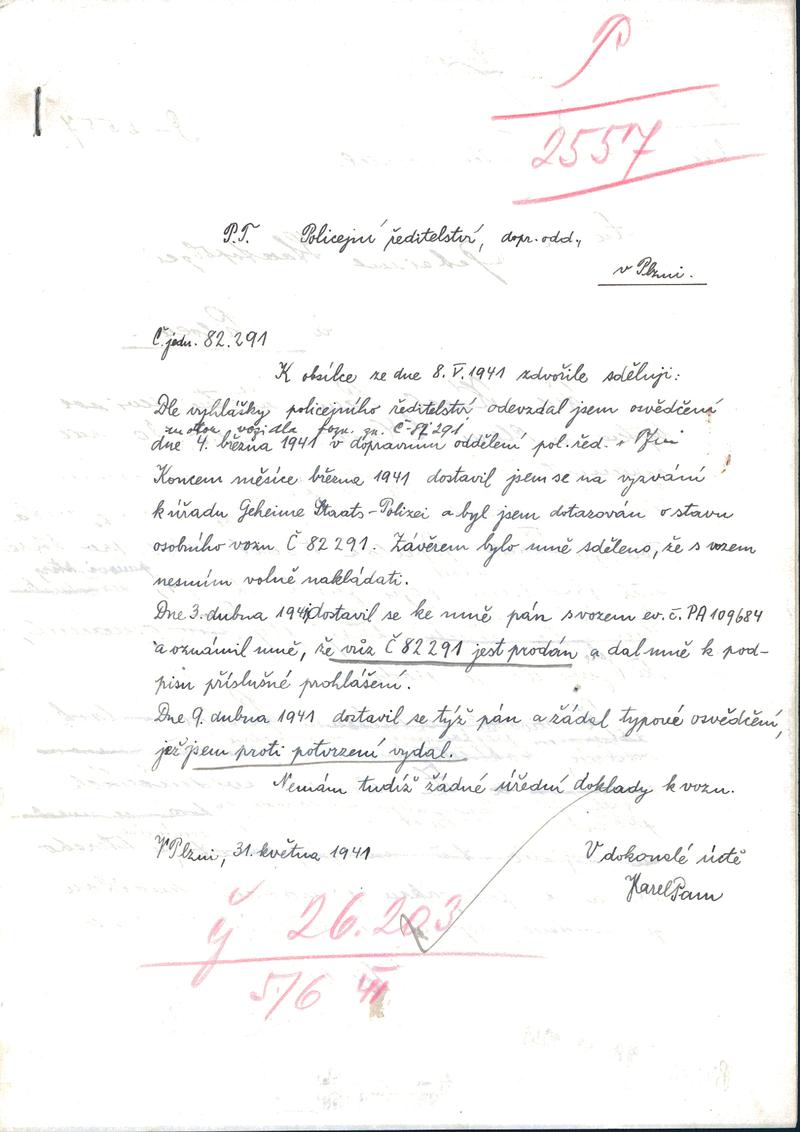 P
2557
P.T. Policejní ředitelství, dopr. odd.,
v Plzni.
Č. jedn. 82.291
K obsílce ze dne 8.V.1941 zdvořile sděluji:
Dle vyhlášky policejního ředitelství odevzdal jsem osvědčení
motor. vozidla pozn. zn. Č-82291
dne 4. března 1941 v dopravním oddělení pol. řed.
Koncem měsíce března 1941 dostavil jsem se na vyzvání
k úřadu Geheime Staats-Polizei a byl jsem dotazován o stavu
osobního vozu Č 82291. Závěrem bylo mně sděleno, že s vozem
nesmím volně nakládati.
Dne 3. dubna 1941 dostavil se ke mně pán s vozem ev. č. PA 109684
a oznámil mně, že vůz Č 82291 jest prodán a dal mně k pod-
pisu příslušné prohlášení.
Dne 9. dubna 1941 dostavil se týž pán a žádal typové osvědčení,
jež jsem proti potvrzení vydal.
Nemám tudíž žádné úřední doklady k vozu.
V Plzni, 31. května 1941
V dokonalé úctě
Karel Pam
26.203
5/6 41